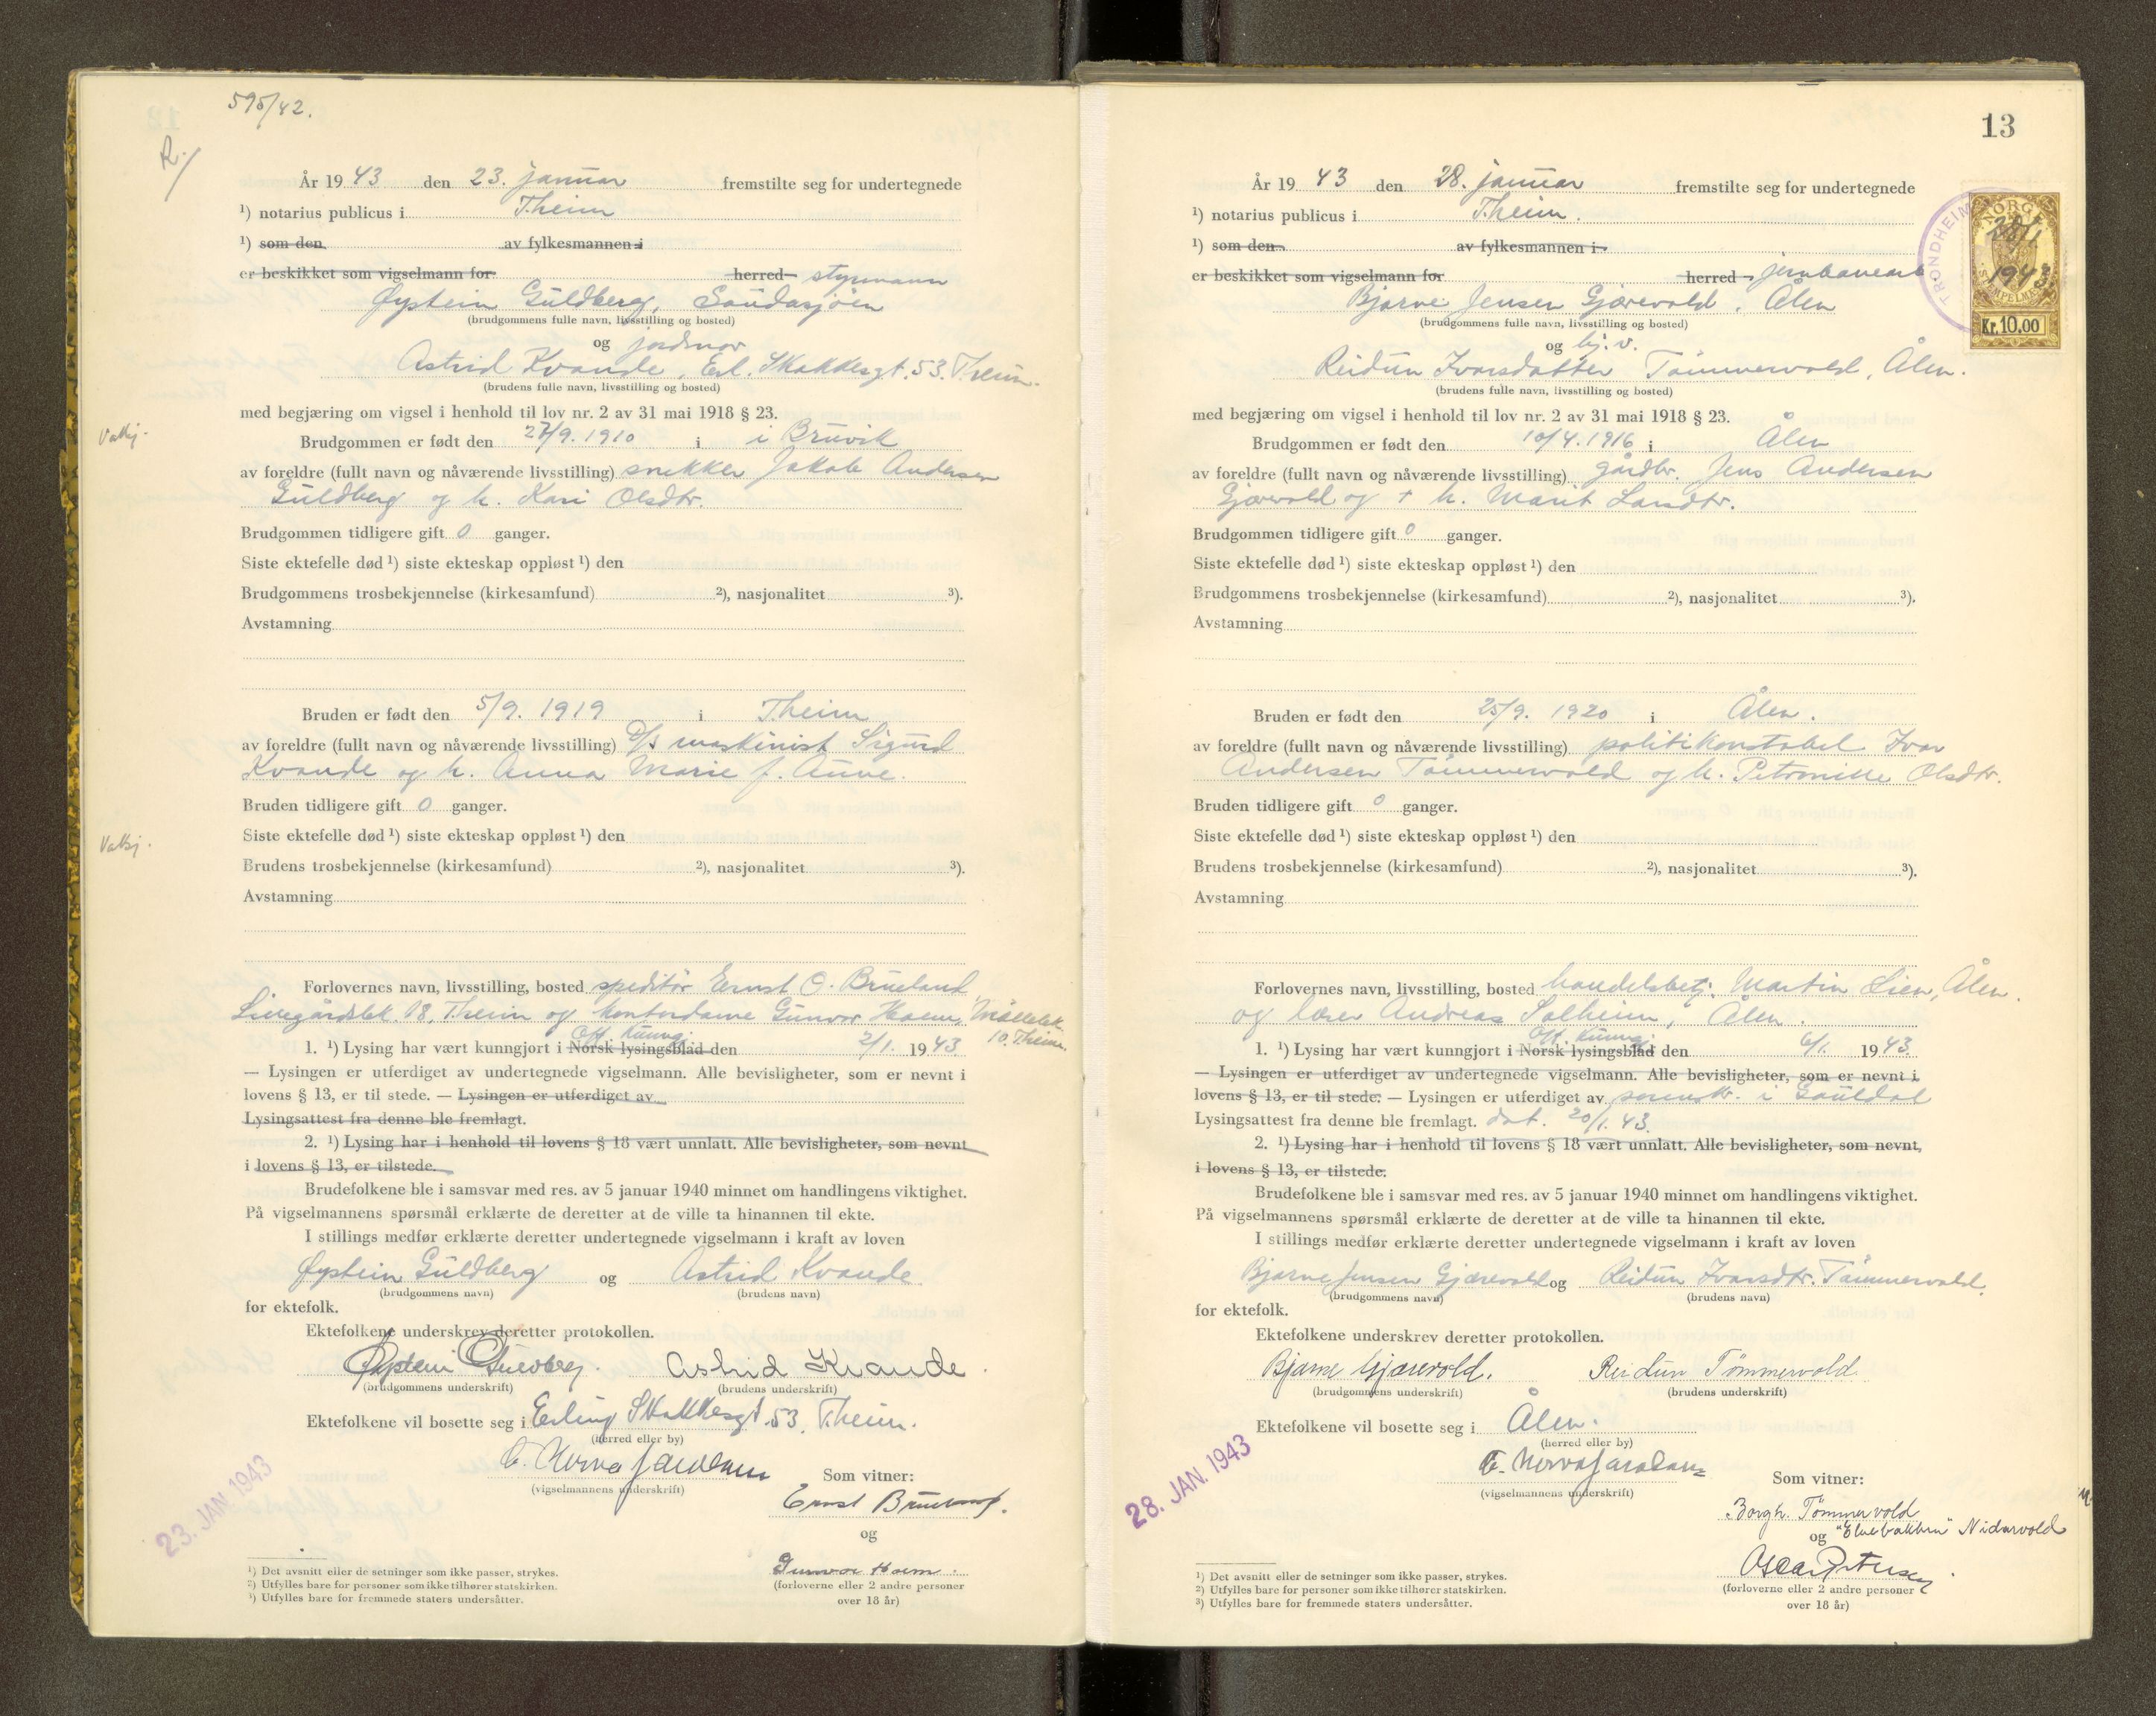 595/42.
R./
År 1943 den 23. januar fremstilte seg for undertegnede
¹) notarius publicus i T.heim
¹) som den av fylkesmannen i
er beskikket som vigselmann for herred styrmann
Øystein Guldberg, Saudasjøen
(brudgommens fulle navn, livsstilling og bosted)
og jordmor
Astrid Kvande, Erl. Skakkesgt. 53. T.heim.
(brudens fulle navn, livsstilling og bosted)
med begjæring om vigsel i henhold til lov nr. 2 av 31 mai 1918 § 23.
Brudgommen er født den 27/9. 1910 i i Bruvik
av foreldre (fullt navn og nåværende livsstilling) snekker Jakob Andersen
Guldberg og h. Kari Olsdtr.
Brudgommen tidligere gift 0 ganger.
Siste ektefelle død ¹) siste ekteskap oppløst ¹) den
Brudgommens trosbekjennelse (kirkesamfund) ²), nasjonalitet ³).
Avstamning
Bruden er født den 5/9. 1919 i T.heim
av foreldre (fullt navn og nåværende livsstilling) D/S maskinist Sigurd
Kvande og h. Anna Marie f. Aune.
Bruden tidligere gift 0 ganger.
Siste ektefelle død ¹) siste ekteskap oppløst ¹) den
Brudens trosbekjennelse (kirkesamfund) ²), nasjonalitet ³).
Avstamning
Forlovernes navn, livsstilling, bosted speditør Ernst O. Brueland
18, T.heim og kontordame Gunvor Hoem, Møllebk.
10. T.heim.
Off. kunngj.
1. ¹) Lysing har vært kunngjort i Norsk lysingsblad den 2/1. 1943
— Lysingen er utferdiget av undertegnede vigselmann. Alle bevisligheter, som er nevnt i
lovens § 13, er til stede. — Lysingen er utferdiget av
Lysingsattest fra denne ble fremlagt.
2. ¹) Lysing har i henhold til lovens § 18 vært unnlatt. Alle bevisligheter, som nevnt
i lovens § 13, er tilstede.
Brudefolkene ble i samsvar med res. av 5 januar 1940 minnet om handlingens viktighet.
På vigselmannens spørsmål erklærte de deretter at de ville ta hinannen til ekte.
I stillings medfør erklærte deretter undertegnede vigselmann i kraft av loven
Øystein Guldberg og Astrid Kvande
(brudgommens navn) (brudens navn)
for ektefolk.
Ektefolkene underskrev deretter protokollen.
Øystein Guldberg. Astrid Kvande.
(brudgommens underskrift) (brudens underskrift)
Ektefolkene vil bosette seg i Erling Skakkesgt. 53, T.heim.
(herred eller by)
(vigselmannens underskrift)
Som vitner:
Ernst Brueland.
og
Gunvor Hoem.
(forloverne eller 2 andre personer
over 18 år)
23. JAN. 1943
¹) Det avsnitt eller de setninger som ikke passer, strykes.
²) Utfylles bare for personer som ikke tilhører statskirken.
³) Utfylles bare for fremmede staters undersåtter.
13
År 1943 den 28. januar fremstilte seg for undertegnede
¹) notarius publicus i T.heim.
¹) som den av fylkesmannen i
er beskikket som vigselmann for herred jernbanearb.
Bjarne Jensen Gjærevold, Ålen
(brudgommens fulle navn, livsstilling og bosted)
og hj. v.
Reidun Ivarsdatter Tømmervold, Ålen.
(brudens fulle navn, livsstilling og bosted)
TRONDHEIM
NORGE
28/1
1943
STEMPELMERKE
Kr. 10.00
med begjæring om vigsel i henhold til lov nr. 2 av 31 mai 1918 § 23.
Brudgommen er født den 10/4. 1916 i Ålen
av foreldre (fullt navn og nåværende livsstilling) gårdbr. Jens Andersen
Gjærevold og + h. Marit Larsdtr.
Brudgommen tidligere gift 0 ganger.
Siste ektefelle død ¹) siste ekteskap oppløst ¹) den
Brudgommens trosbekjennelse (kirkesamfund) ²), nasjonalitet ³).
Avstamning
Bruden er født den 25/9. 1920 i Ålen.
av foreldre (fullt navn og nåværende livsstilling) politikonstabel Ivar
Andersen Tømmervold og h. Petronille Olsdtr.
Bruden tidligere gift 0 ganger.
Siste ektefelle død ¹) siste ekteskap oppløst ¹) den
Brudens trosbekjennelse (kirkesamfund) ²), nasjonalitet ³).
Avstamning
Forlovernes navn, livsstilling, bosted handelsbetj. Martin Lien, Ålen.
og lærer Andreas Solheim, Ålen.
Off. kunngj.
1. ¹) Lysing har vært kunngjort i Norsk lysingsblad den 6/1. 1943.
— Lysingen er utferdiget av undertegnede vigselmann. Alle bevisligheter, som er nevnt i
lovens § 13, er til stede. — Lysingen er utferdiget av sorenskr. i Gauldal
Lysingsattest fra denne ble fremlagt. dat. 20/1. 43.
2. ¹) Lysing har i henhold til lovens § 18 vært unnlatt. Alle bevisligheter, som nevnt,
i lovens § 13, er tilstede.
Brudefolkene ble i samsvar med res. av 5 januar 1940 minnet om handlingens viktighet.
På vigselmannens spørsmål erklærte de deretter at de ville ta hinannen til ekte.
I stillings medfør erklærte deretter undertegnede vigselmann i kraft av loven
Bjarne Jensen Gjærevold og Reidun Ivarsdtr. Tømmervold.
(brudgommens navn) (brudens navn)
for ektefolk.
Ektefolkene underskrev deretter protokollen.
Bjarne Gjærevold. Reidun Tømmervold.
(brudgommens underskrift) (brudens underskrift)
Ektefolkene vil bosette seg i Ålen.
(herred eller by)
(vigselmannens underskrift)
Som vitner:
Borgh. Tømmervold
og Nidarvold
Oscar Petersen
(forloverne eller 2 andre personer
over 18 år)
28. JAN. 1943
¹) Det avsnitt eller de setninger som ikke passer, strykes.
²) Utfylles bare for personer som ikke tilhører statskirken.
³) Utfylles bare for fremmede staters undersåtter.